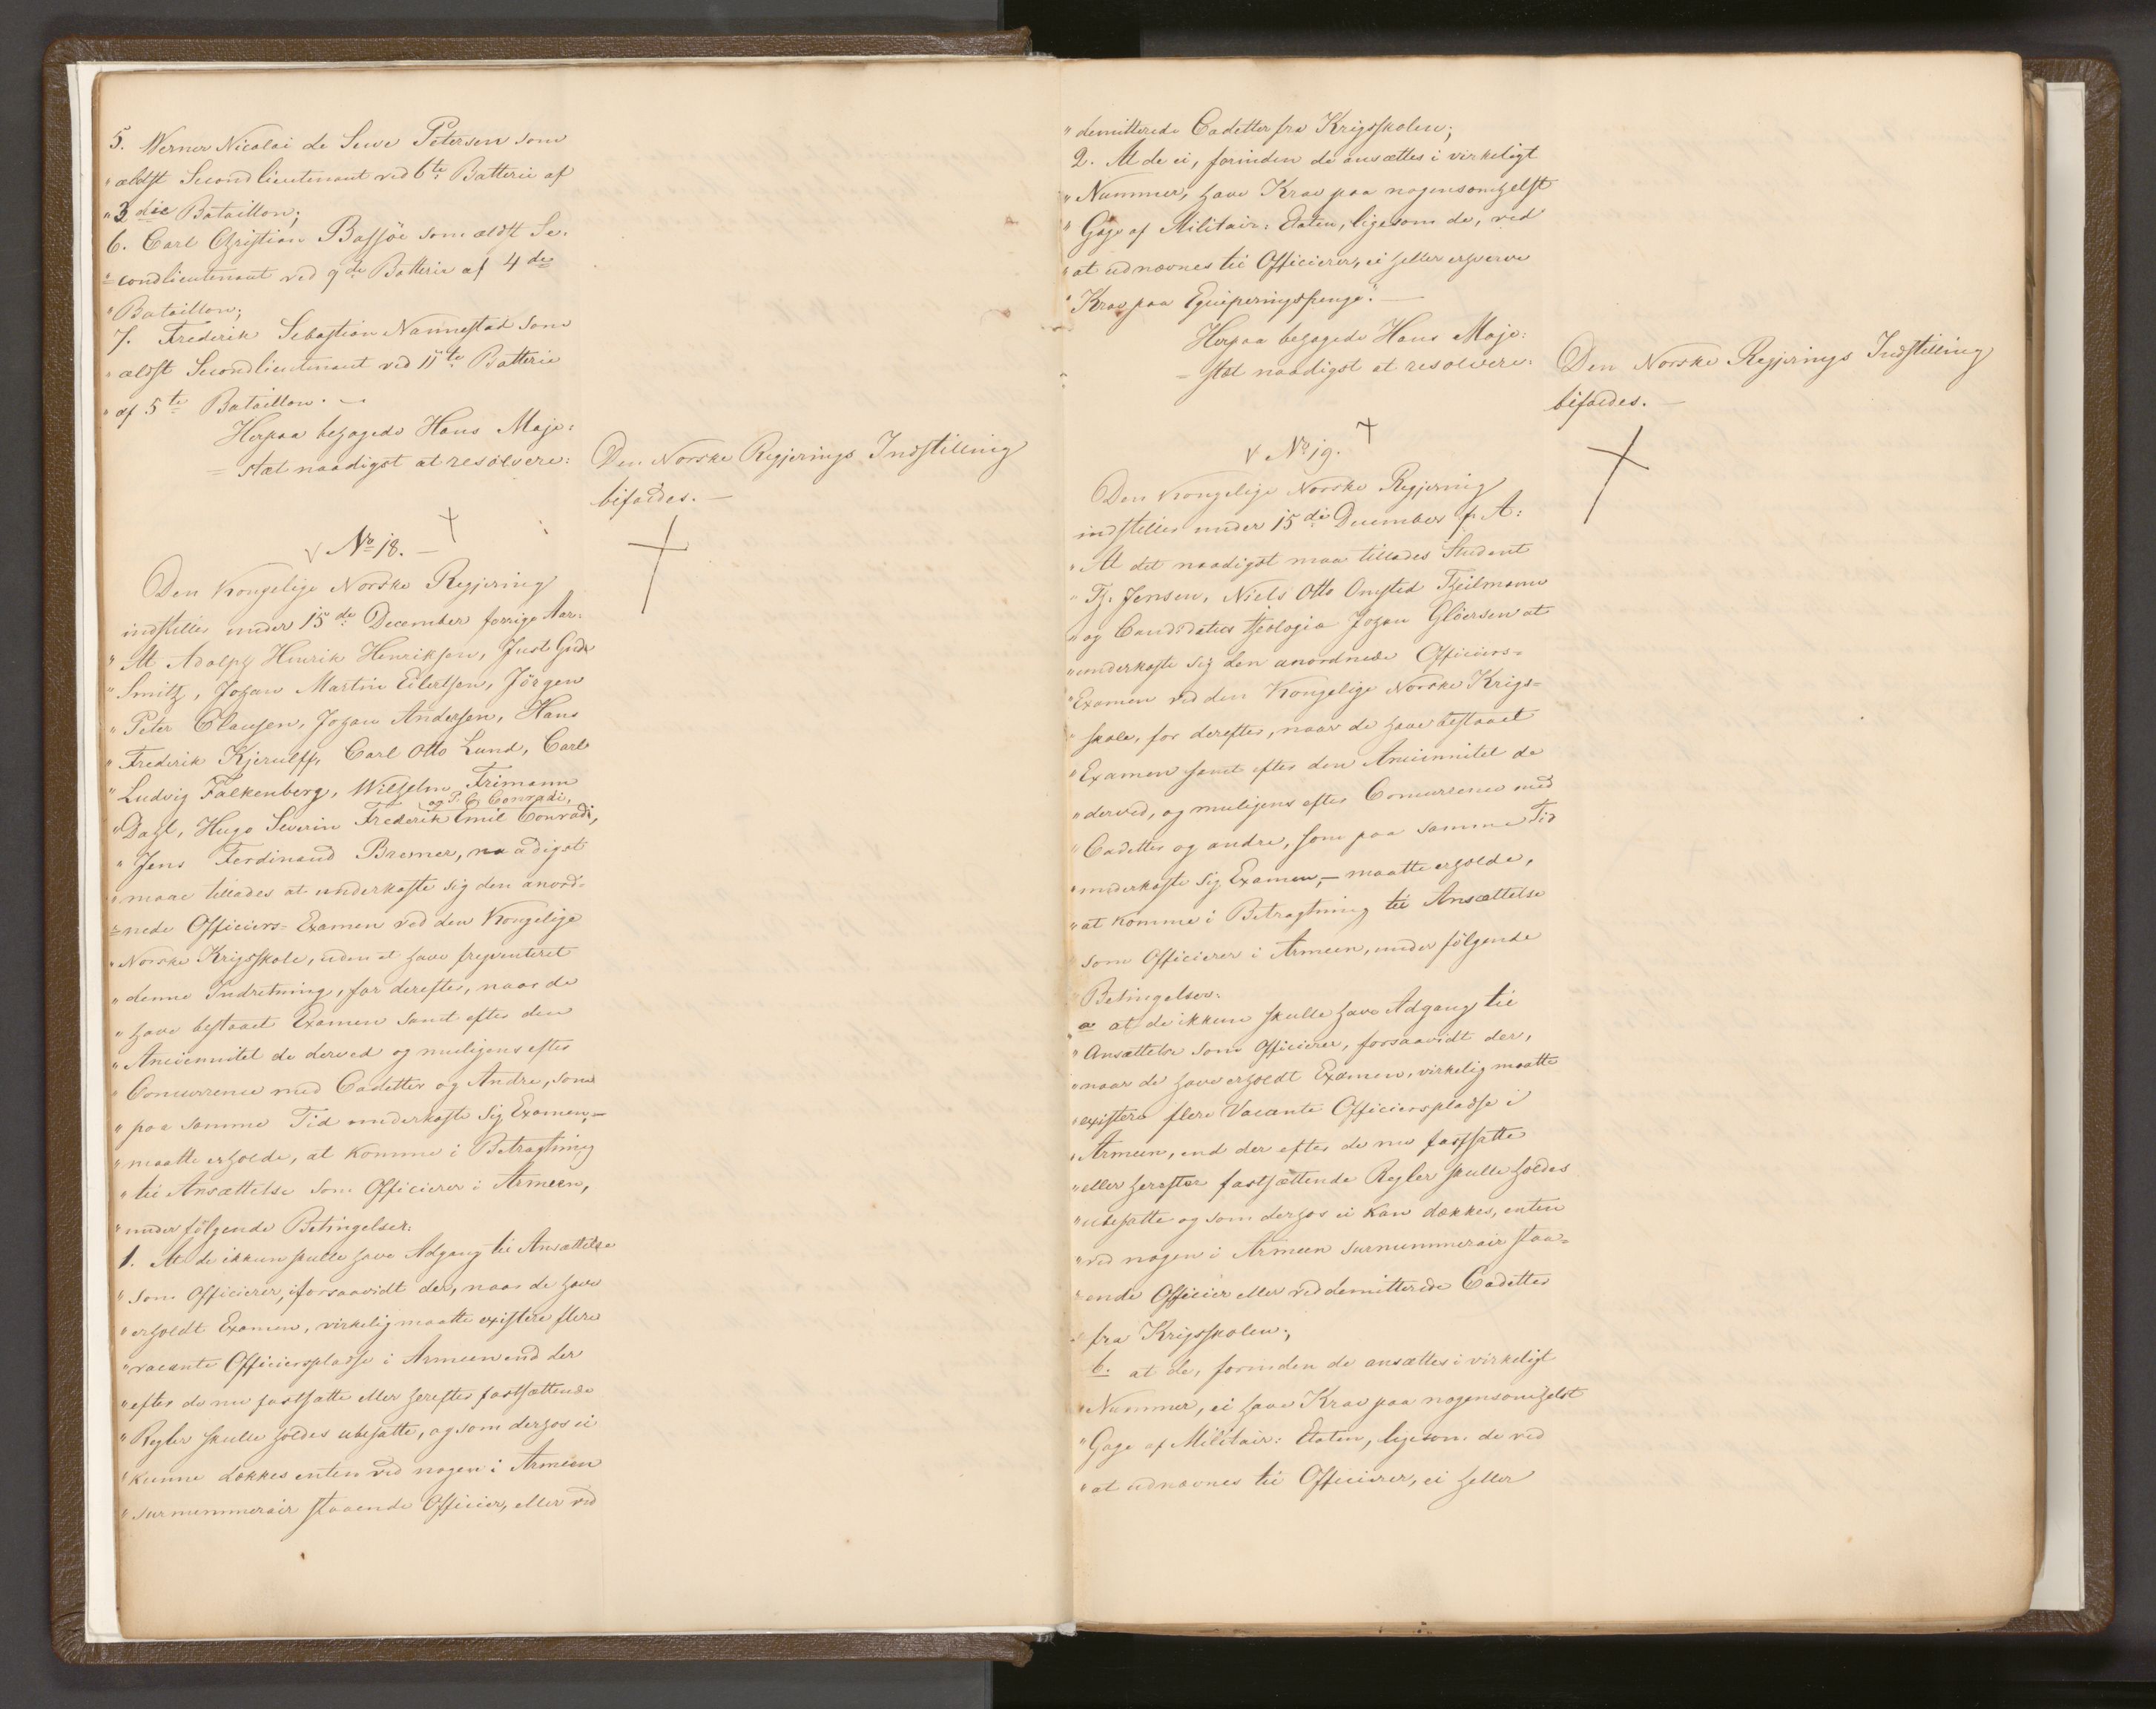 5. Werner Nicolai de Seve Petersen som
" ældst Secondlieutenant ved 6te Batterie af
" 3die Bataillon;
6. Carl Christian Bassöe som ældst Se-
= condlieutenant ved 9de Batterie af 4de
" Bataillon;
7. Frederik Sebastian Nannestad som
" ældst Secondlieutenant ved 11te Batterie
" af 5te Bataillon. —
Herpaa behagede Hans Maje:
= stæt naadigst at resolvere:
Den Norske Regjerings Indstilling
bifaldes. —
No 18. —
Den Kongelige Norske Regjering
indstiller under 15de December forrige Aar:
" At Adolph Henrik Henriksen, Just Gide
" Smith, Johan Martin Eilertsen, Jörgen
" Peter Clausen, Johan Andersen, Hans
" Frederik Kjerulff, Carl Otto Lund, Carl
" Ludvig Falkenberg, Wilhelm Frimann
og P. C. Conradi,
" Dahl, Hugo Severin Frederik Emil Conradi,
" Jens Ferdinand Bremer, naadigst
" maae tillades at underkaste sig den anord-
= nede Officiers-Examen ved den Kongelige
" Norske Krigsskole, uden at have freqventeret
" denne Indretning, for derefter, naar de
" have bestaaet Examen samt efter den
" Anciennitet de derved og muligens efter
" Concurrence med Cadetter og Andre, som
" paa samme Tid underkaste sig Examen, —
" maatte erholde, at komme i Betragtning
" til Ansættelse som Officierer i Armeen,
" under fölgende Betingelser:
1. At de ikkun skulle have Adgang til Ansættelse
" som Officierer, iforsaavidt der, naar de have
" erholdt Examen, virkelig maatte existere flere
" vacante Officierspladse i Armeen end der
" efter de nu fastsatte eller herefter fastsættende
" Regler skulle holdes ubesatte, og som derhos ei
" kunne dækkes enten ved nogen i Armeen
" surnummerair staaende Officier, eller ved
" demitterede Cadetter fra Krigsskolen;
2. At de ei, forinden de ansættes i virkeligt
" Nummer, have Krav paa nogensomhelst
" Gage af Militair: Etaten, ligesom de, ved
" at udnævnes til Officierer, ei heller erhverve
" Krav paa Equiperingspenge". —
Herpaa behagede Hans Maje:
= stæt naadigst at resolvere:
Den Norske Regjerings Indstilling
bifaldes. —
No 19.
Den Kongelige Norske Regjering
indstiller under 15de December f. A:
" At det naadigst maa tillades Student
" Th. Jensen, Niels Otto Onsted Theilmann
" og Candidatus theologiæ Johan Glöersen at
" underkaste sig den anordnede Officiers-
" Examen ved den Kongelige Norske Krigs-
" skole, for derefter, naar de have bestaaet
" Examen samt efter den Anciennitet de
" derved, og muligens efter Concurrence med
" Cadetter og andre, som paa samme Tid
" underkaste sig Examen, — maatte erholde,
" at komme i Betragtning til Ansættelse
som Officierer i Armeen, under fölgende
Betingelser:
a at de ikkun skulle have Adgang til
" Ansættelse som Officierer, forsaavidt der,
" naar de have erholdt Examen, virkelig maatte
" existere flere vacante Officierspladse i
" Armeen, end der efter de nu fastsatte
" eller herefter fastsættende Regler skulle holdes
" ubesatte og som derhos ei kan dækkes, enten
" ved nogen i Armeen surnummerair staa-
= ende Officier eller ved demitterede Cadetter
" fra Krigsskolen;
b. at de, forinden de ansættes i virkeligt
" Nummer, ei have Krav paa nogensomhelst
" Gage af Militair: Etaten, ligesom de ved
" at udnævnes til Officierer, ei heller